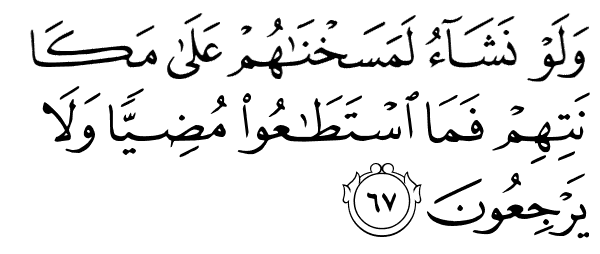 وَلَوۡ نَشَآءُ لَمَسَخۡنَٰهُمۡ عَلَىٰ مَكَا
نَتِهِمۡ فَمَا ٱسۡتَطَٰعُواْ مُضِيّٗا وَلَا
يَرۡجِعُونَ ٦٧